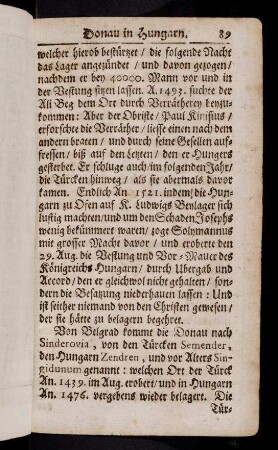 Donau in Hungarn. 89
welcher hierob bestürtzet / die folgende Nacht
das Lager angezündet / und davon gezogen /
nachdem er bey 40000. Mann vor und in
der Vestung sitzen lassen. A. 1493. suchte der
Ali Beg dem Ort durch Verrätherey beyzu-
kommen: Aber der Obriste / Paul Kinisius /
erforschte die Verräther / liesse einen nach dem
andern braten / und durch seine Gesellen auf-
fressen / biß auf den Letzten / den er Hungers
gesterbet. Er schluge auch / im folgenden Jahr /
die Türcken hinweg / als sie abermals davor
kamen. Endlich An 1521. indem die Hun-
garn zu Ofen auf K. Ludwigs Beylager sich
lustig machten / und um den Schaden Josephs
wenig bekümmert waren / zoge Solymannus
mit grosser Macht davor / und eroberte den
29. Aug. die Vestung und Vor-Mauer des
Königreichs Hungarn / durch Ubergab und
Accord / den er gleichwol nicht gehalten / son-
dern die Besatzung niederhauen lassen: Und
ist seither niemand von den Christen gewesen /
der sie hätte zu belagern begehret.
Von Belgrad komme die Donau nach
Sinderovia, von den Türcken Semender,
den Hungarn Zendren, und vor Alters Sin-
gidunum genannt: welchen Ort der Türck
An. 1439. im Aug. erobert / und in Hungarn
An. 1476. vergebens wieder belagert. Die
Tür-